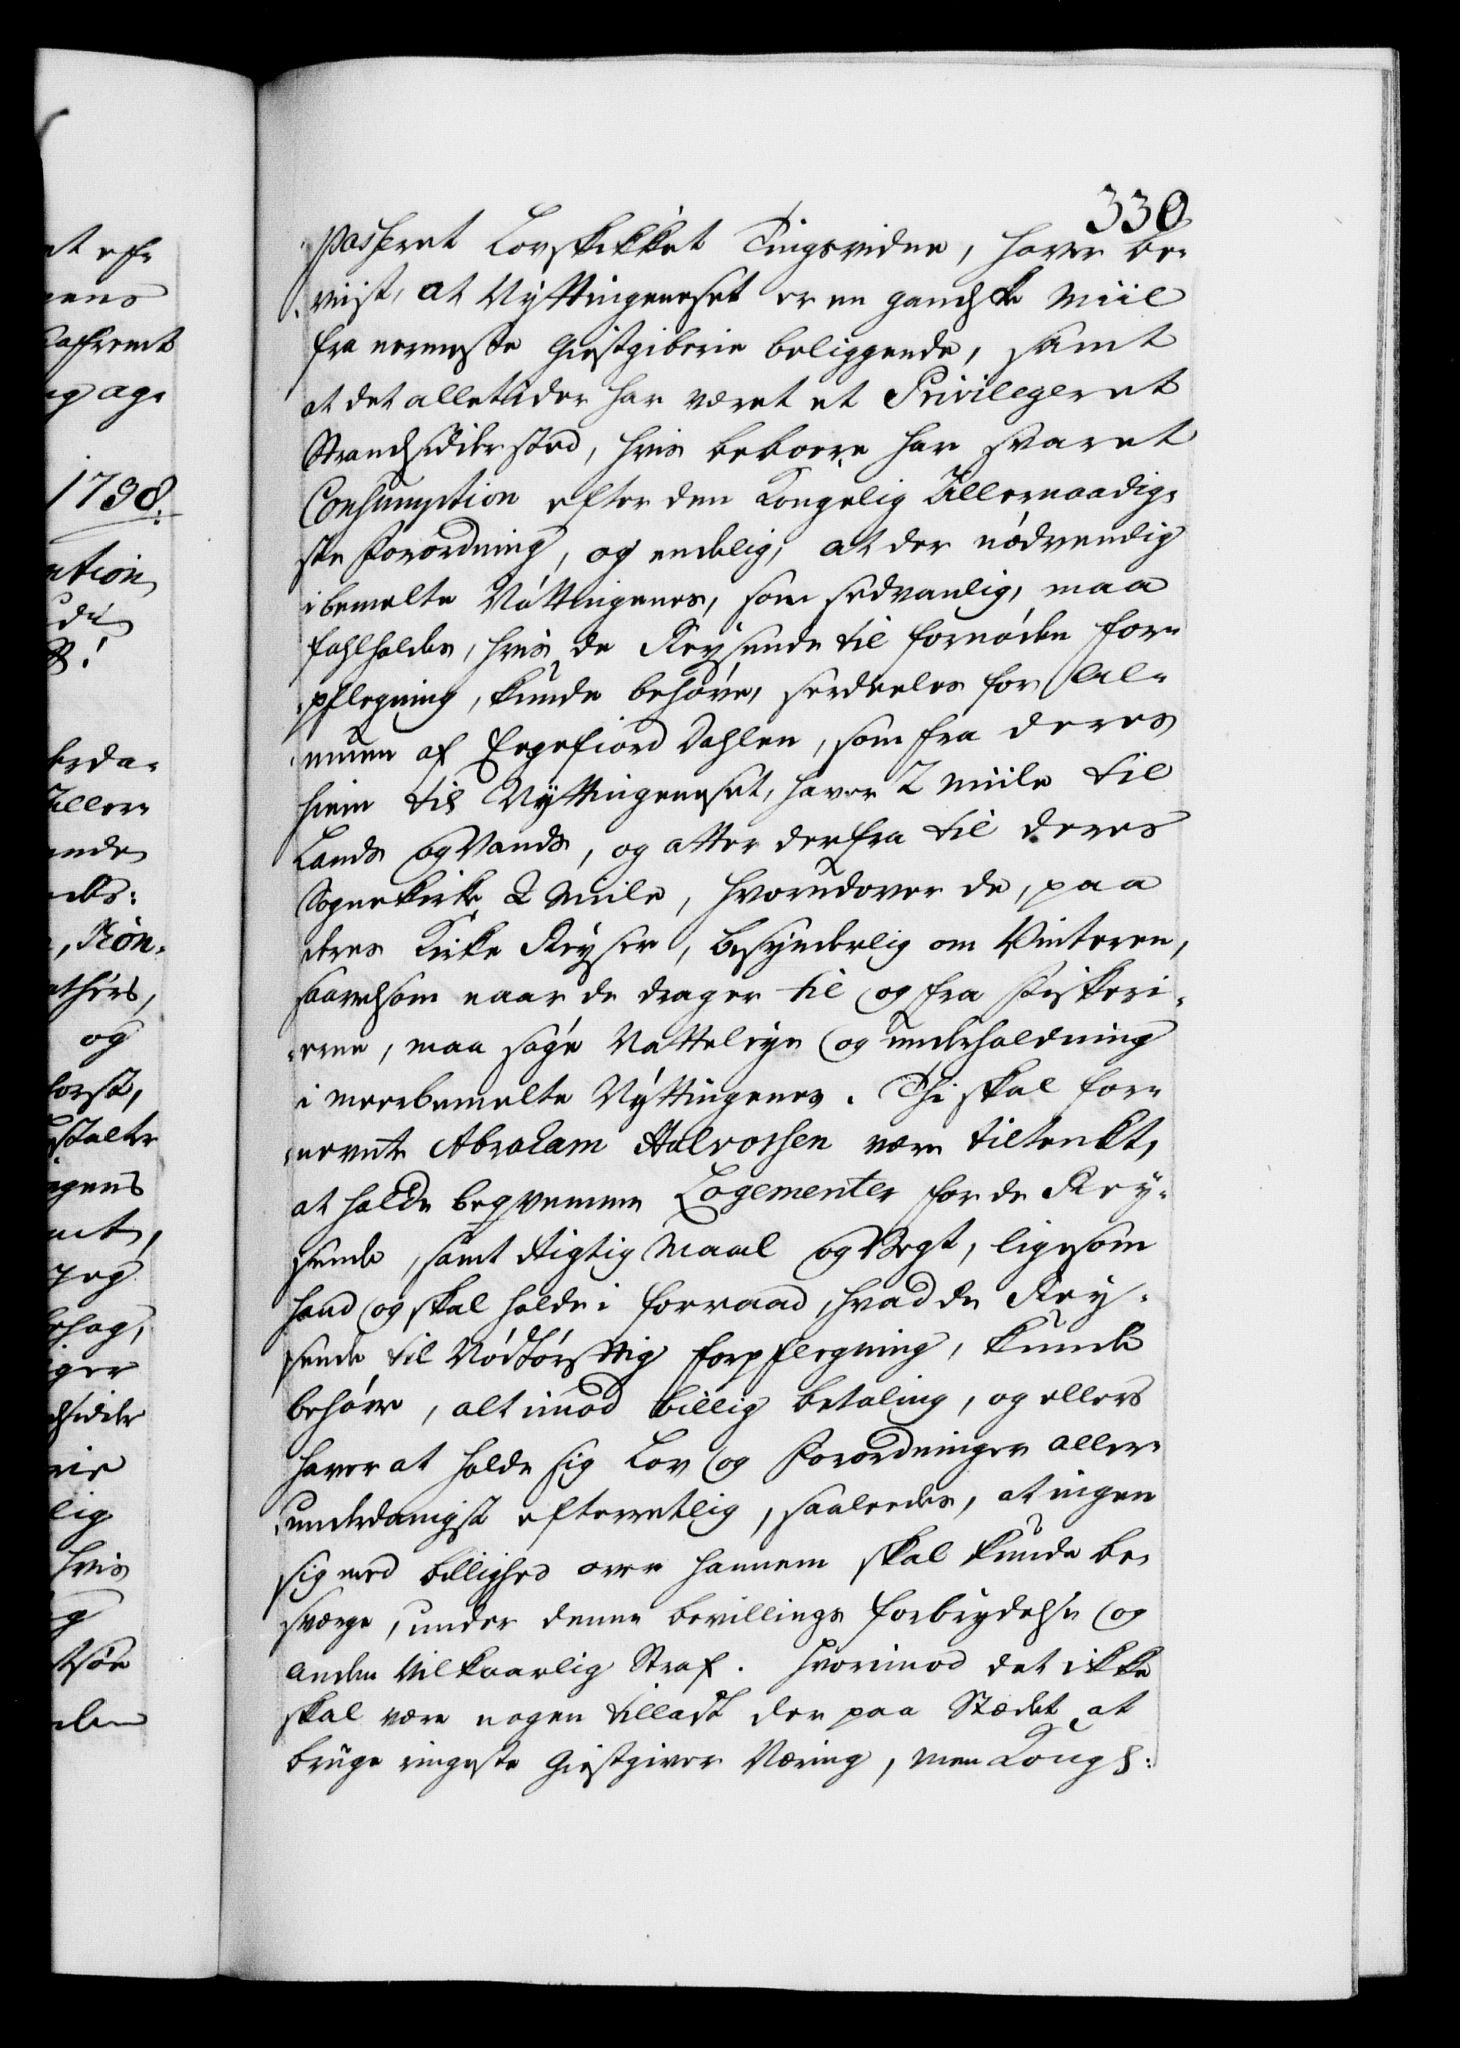 330
passeret Lovskikket Tingsvidne, haver be-
vist, at Nÿttingeneset er en gandske Miil
fra nermeste Giestgiberie beliggende, samt
at det alletider har været et Privilegeret
Strandsidderstæd, hvis beboere har svaret
Consumption efter den Kongelig Allernaadig-
ste Forordning, og endelig, at der nødvendig
ibemelte Nÿttingenes, som sedvanlig, maa
fahlholdes, hvis de Reysende til fornøden for-
pflegning, kunde behøve, serdeeles for Al-
muen af Dahlen, som fra deres
hiem til Nÿttingeneset, haver 2 Miile til
Lands og Vands, og atter derfra til deres
Sognekirke 2 Miile, hvorudover de, paa
deres Kirke Reyser, besynderlig om Vinteren,
saavelsom naar de drager til og fra Fiskeri-
erne, maa søge Natteleye og underholdning
i meerbemelte Nÿttingenes. Thi skal for-
nevnte Abraham Halvorsen være tiltenkt,
at holde beqvemme Logementer for de Rey-
sende, samt Rigtig Maal og Vegt, ligesom
hand og skal holde i forraad, hvad de Rey-
sende til Nødtørftig forpflegning, kunde
behøve, alt imod billig betaling, og ellers
haver at holde sig Lov og Forordninger aller-
underdanigst efterretlig, saaledes, at ingen
sig med billighed over hannem skal kunde be-
sværge, under denne bevillings forbrydelse og
anden vilkaarlig Straf. Hvorimod det ikke
skal være nogen tilladt der paa Stædet at
bruge ringeste Giestgiver Næring, men Kongl:
1738.
ation
og
Røn-